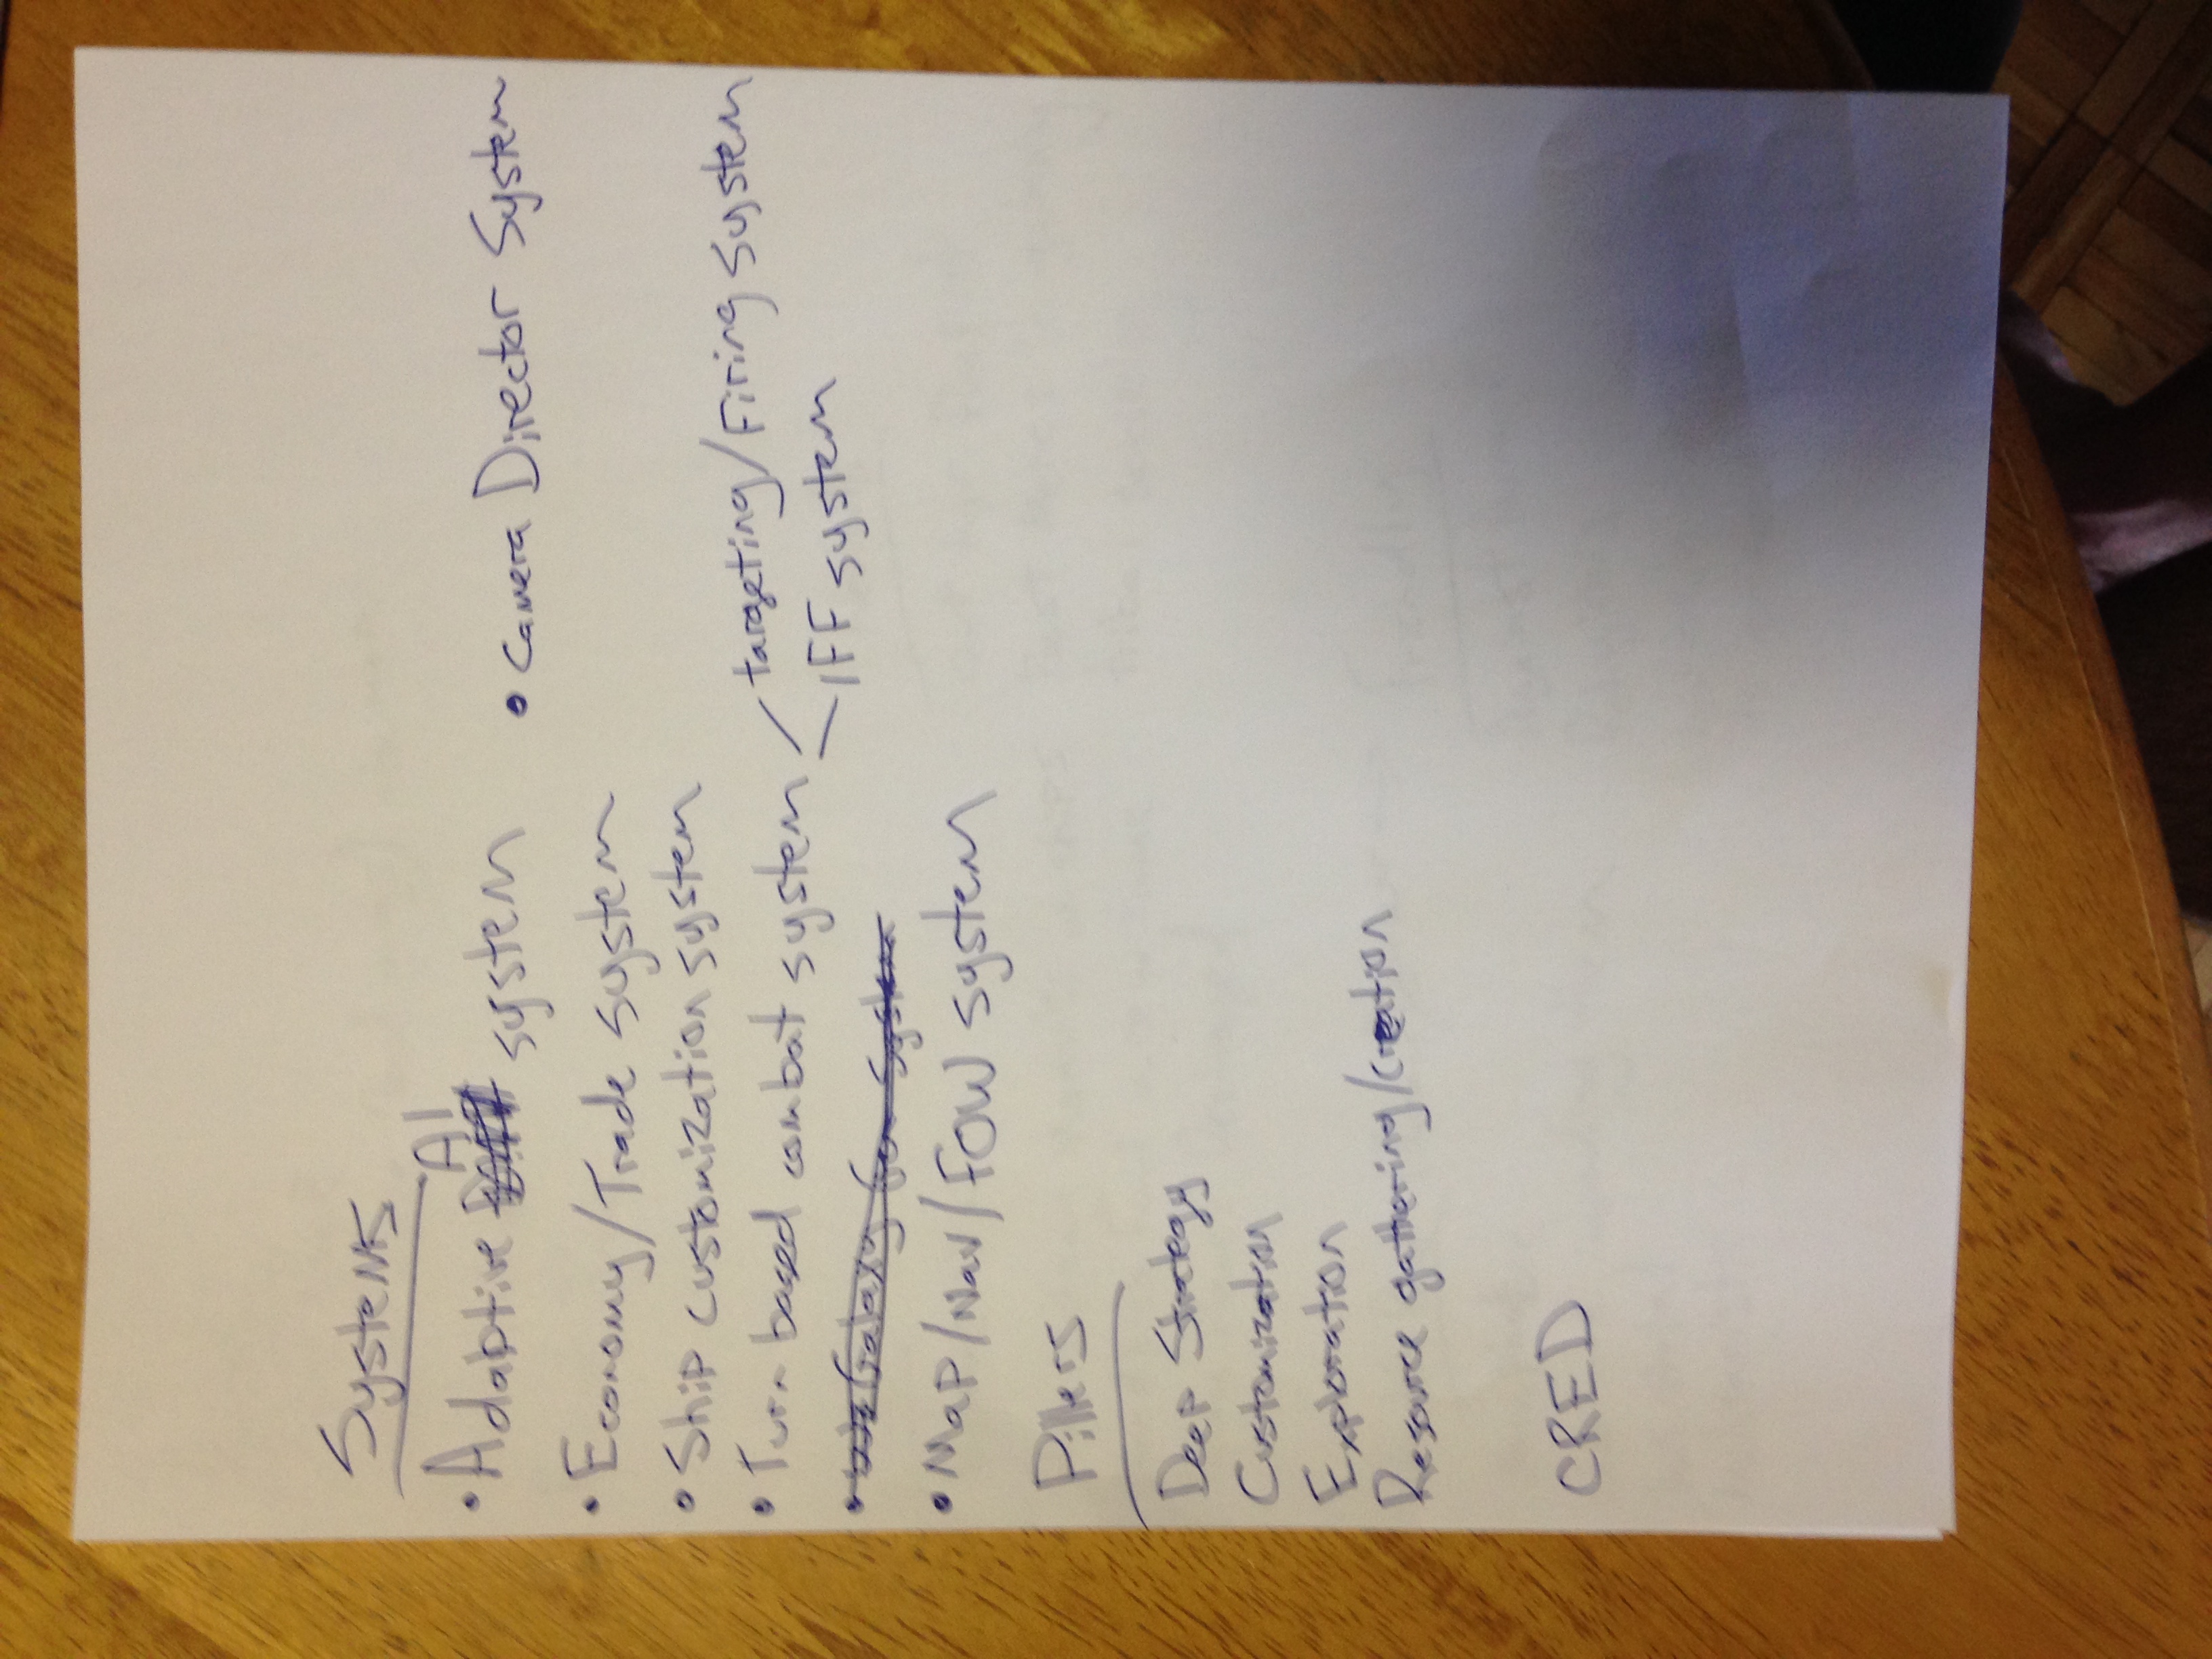 Systems
AI
• Adaptive system
• Camera Director System
• Economy/Trade system
• Ship customization system
• Turn based combat system
targeting/Firing system
IFF system
• Galaxy Gen System
• Map/Nav/FOW system
Pillers
Deep Strategy
Customization
Exploration
Resource gathering/creation
CRED